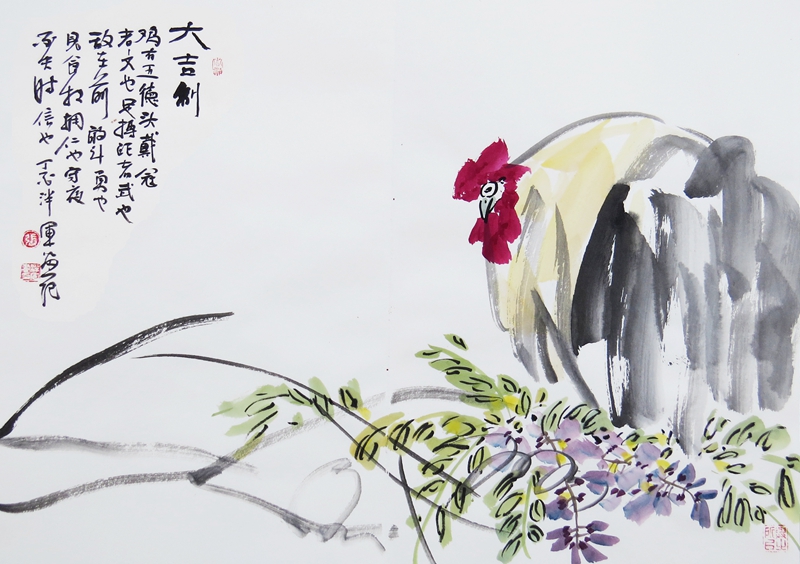 大吉利
鸡有五德头戴冠
者文也足搏距者武也
敌在前敢斗勇也
见食相拥仁也守夜
不失时信也